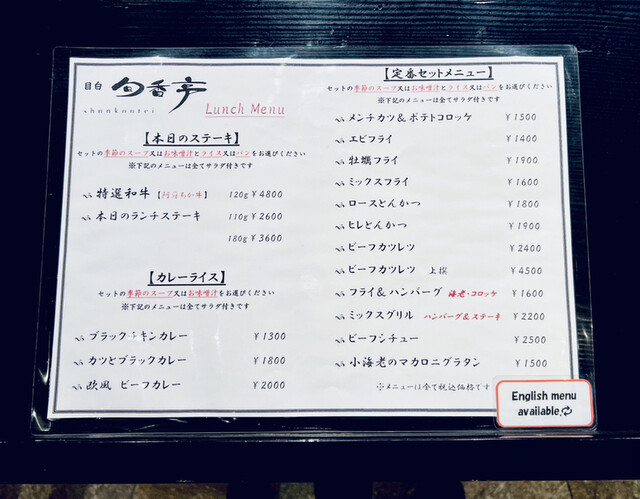 目白 旬香亭
shunkoutei
Lunch Menu
【本日のステーキ】
セットの季節のスープ又はお味噌汁とライス又はパンをお選びください
※下記のメニューは全てサラダ付きです
特選和牛 120g ¥4800
本日のランチステーキ 110g ¥2600
180g ¥3600
【カレーライス】
セットの季節のスープ又はお味噌汁をお選びください
※下記のメニューは全てサラダ付きです
ブラックチキンカレー ¥1300
カツとブラックカレー ¥1800
欧風 ビーフカレー ¥2000
【定番セットメニュー】
セットの季節のスープ又はお味噌汁とライス又はパンをお選びください
※下記のメニューは全てサラダ付きです
メンチカツ&ポテトコロッケ ¥1500
エビフライ ¥1400
牡蠣フライ ¥1900
ミックスフライ ¥1600
ロースとんかつ ¥1800
ヒレとんかつ ¥1900
ビーフカツレツ ¥2400
ビーフカツレツ 上撰 ¥4500
フライ&ハンバーグ 海老・コロッケ ¥1600
ミックスグリル ハンバーグ&ステーキ ¥2200
ビーフシチュー ¥2500
小海老のマカロニグラタン ¥1500
※メニューは全て税込価格です
English menu
available